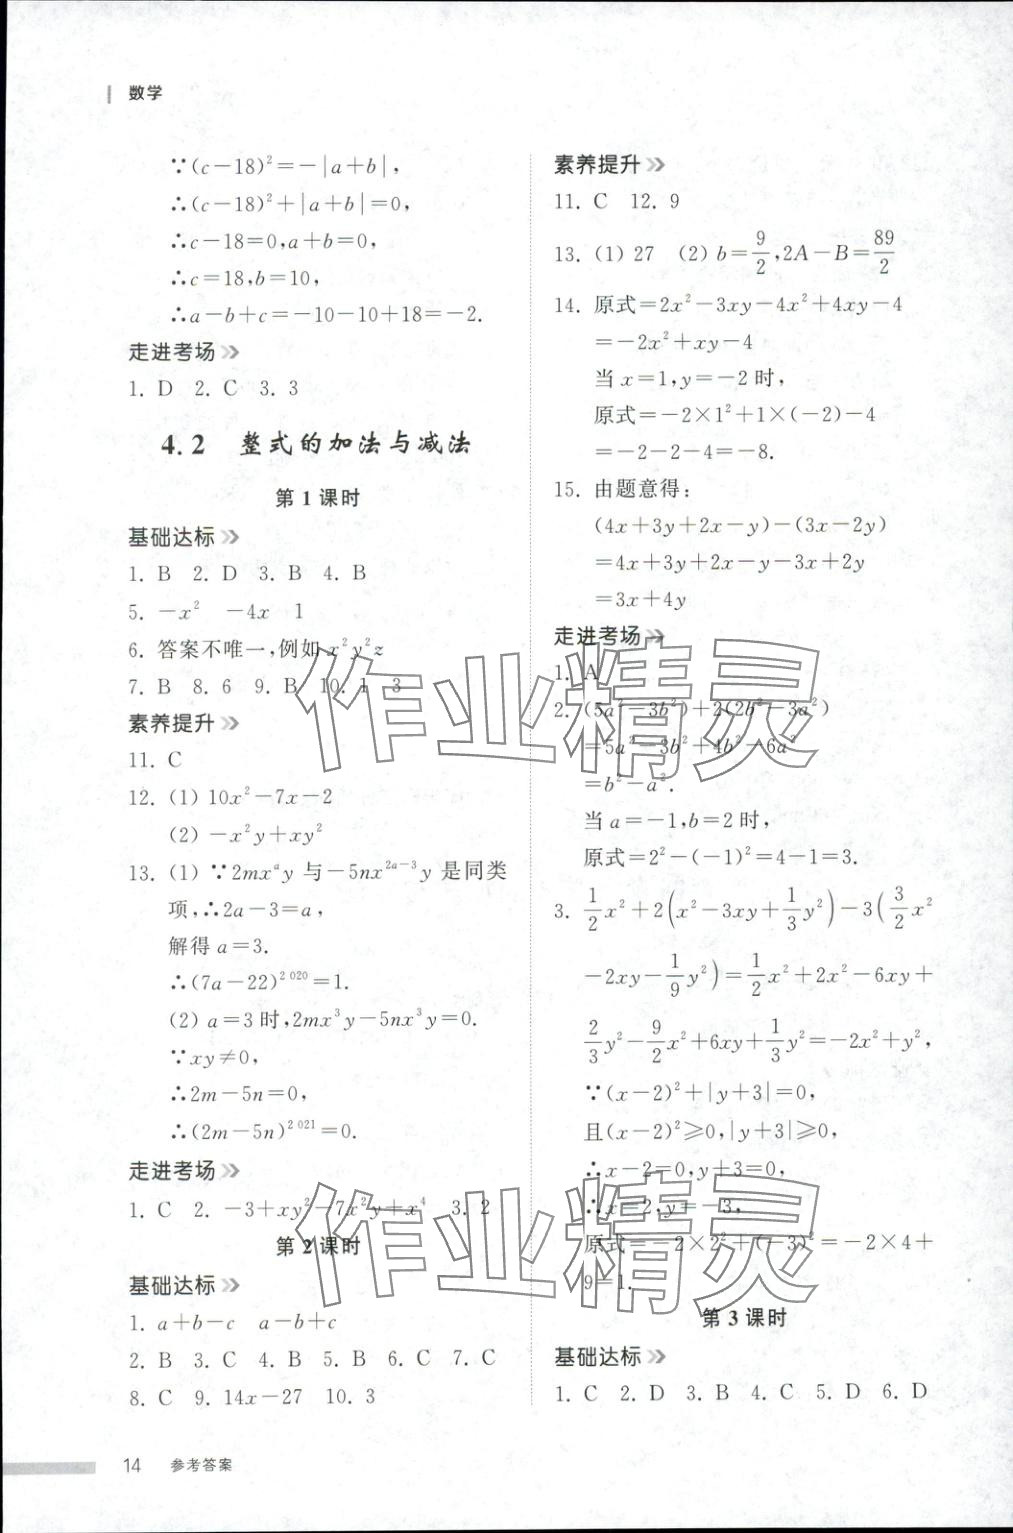 数学
∵(c－18)²＝－|a＋b|，
∴(c－18)²＋|a＋b|＝0，
∴c－18＝0，a＋b＝0，
∴c＝18，b＝10，
∴a－b＋c＝－10－10＋18＝－2.
走进考场
1. D 2. C 3. 3
4.2 整式的加法与减法
第1课时
基础达标
1. B 2. D 3. B 4. B
5. －x² －4x 1
6. 答案不唯一，例如 x²y²z
7. B 8. 6 9. B 10. 1 3
素养提升
11. C
12. (1) 10x²－7x－2
(2) －x²y＋xy²
13. (1) ∵2mxᵃy 与－5nx²ᵃ⁻³y 是同类
项，∴2a－3＝a，
解得 a＝3.
∴(7a－22)²⁰²⁰＝1.
(2) a＝3 时，2mx³y－5nx³y＝0.
∵xy≠0，
∴2m－5n＝0，
∴(2m－5n)²⁰²¹＝0.
走进考场
1. C 2. －3＋xy²－7x²y＋x⁴ 3. 2
第2课时
基础达标
1. a＋b－c a－b＋c
2. B 3. C 4. B 5. B 6. C 7. C
8. C 9. 14x－27 10. 3
素养提升
11. C 12. 9
13. (1) 27 (2) b＝9/2，2A－B＝89/2
14. 原式＝2x²－3xy－4x²＋4xy－4
＝－2x²＋xy－4
当 x＝1，y＝－2 时，
原式＝－2×1²＋1×(－2)－4
＝－2－2－4＝－8.
15. 由题意得：
(4x＋3y＋2x－y)－(3x－2y)
＝4x＋3y＋2x－y－3x＋2y
＝3x＋4y
走进考场
1. A
2. (5a²－3b²)＋2(2b²－3a²)
＝5a²－3b²＋4b²－6a²
＝b²－a².
当 a＝－1，b＝2 时，
原式＝2²－(－1)²＝4－1＝3.
3. 1/2x²＋2(x²－3xy＋1/3y²)－3(3/2x²
－2xy－1/9y²)＝1/2x²＋2x²－6xy＋
2/3y²－9/2x²＋6xy＋1/3y²＝－2x²＋y²，
∵(x－2)²＋|y＋3|＝0，
且(x－2)²≥0，|y＋3|≥0，
∴x－2＝0，y＋3＝0，
∴x＝2，y＝－3，
原式＝－2×2²＋(－3)²＝－2×4＋
9＝1.
第3课时
基础达标
1. C 2. D 3. B 4. C 5. D 6. D
14 参考答案
作业精灵
作业精灵